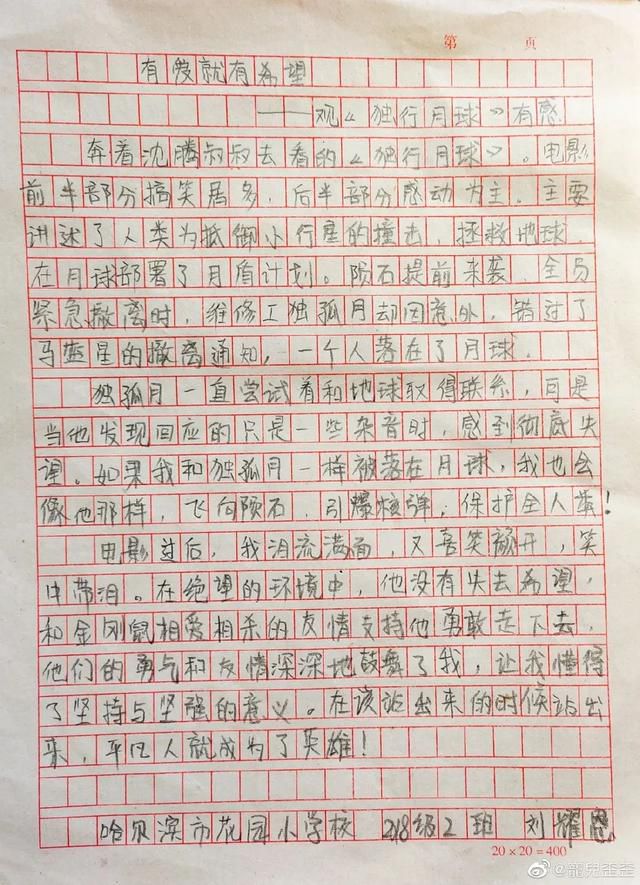 第 页
有爱就有希望
——观《独行月球》有感
奔着沈腾叔叔去看的《独行月球》。电影
前半部分搞笑居多，后半部分感动为主。主要
讲述了人类为抵御小行星的撞击，拯救地球，
在月球部署了月盾计划。陨石提前来袭，全员
紧急撤离时，维修工独孤月却因意外，错过了
马蓝星的撤离通知，一个人落在了月球．
独孤月一直尝试着和地球取得联系，可是
当他发现回应的只是一些杂音时，感到彻底失
望。如果我和独孤月一样被落在月球，我也会
像他那样，飞向陨石，引爆核弹，保护全人类！
电影过后，我泪流满面，又喜笑颜开，笑
中带泪。在绝望的环境中，他没有失去希望，
和金刚鼠相爱相杀的友情支持他勇敢走下去，
他们的勇气和友情深深地鼓舞了我，让我懂得
了坚持与坚强的意义。在该站出来的时候站出
来，平凡人就成为了英雄！
哈尔滨市花园小学校 218级2班 刘耀恩
20×20=400
@寵兒歪歪